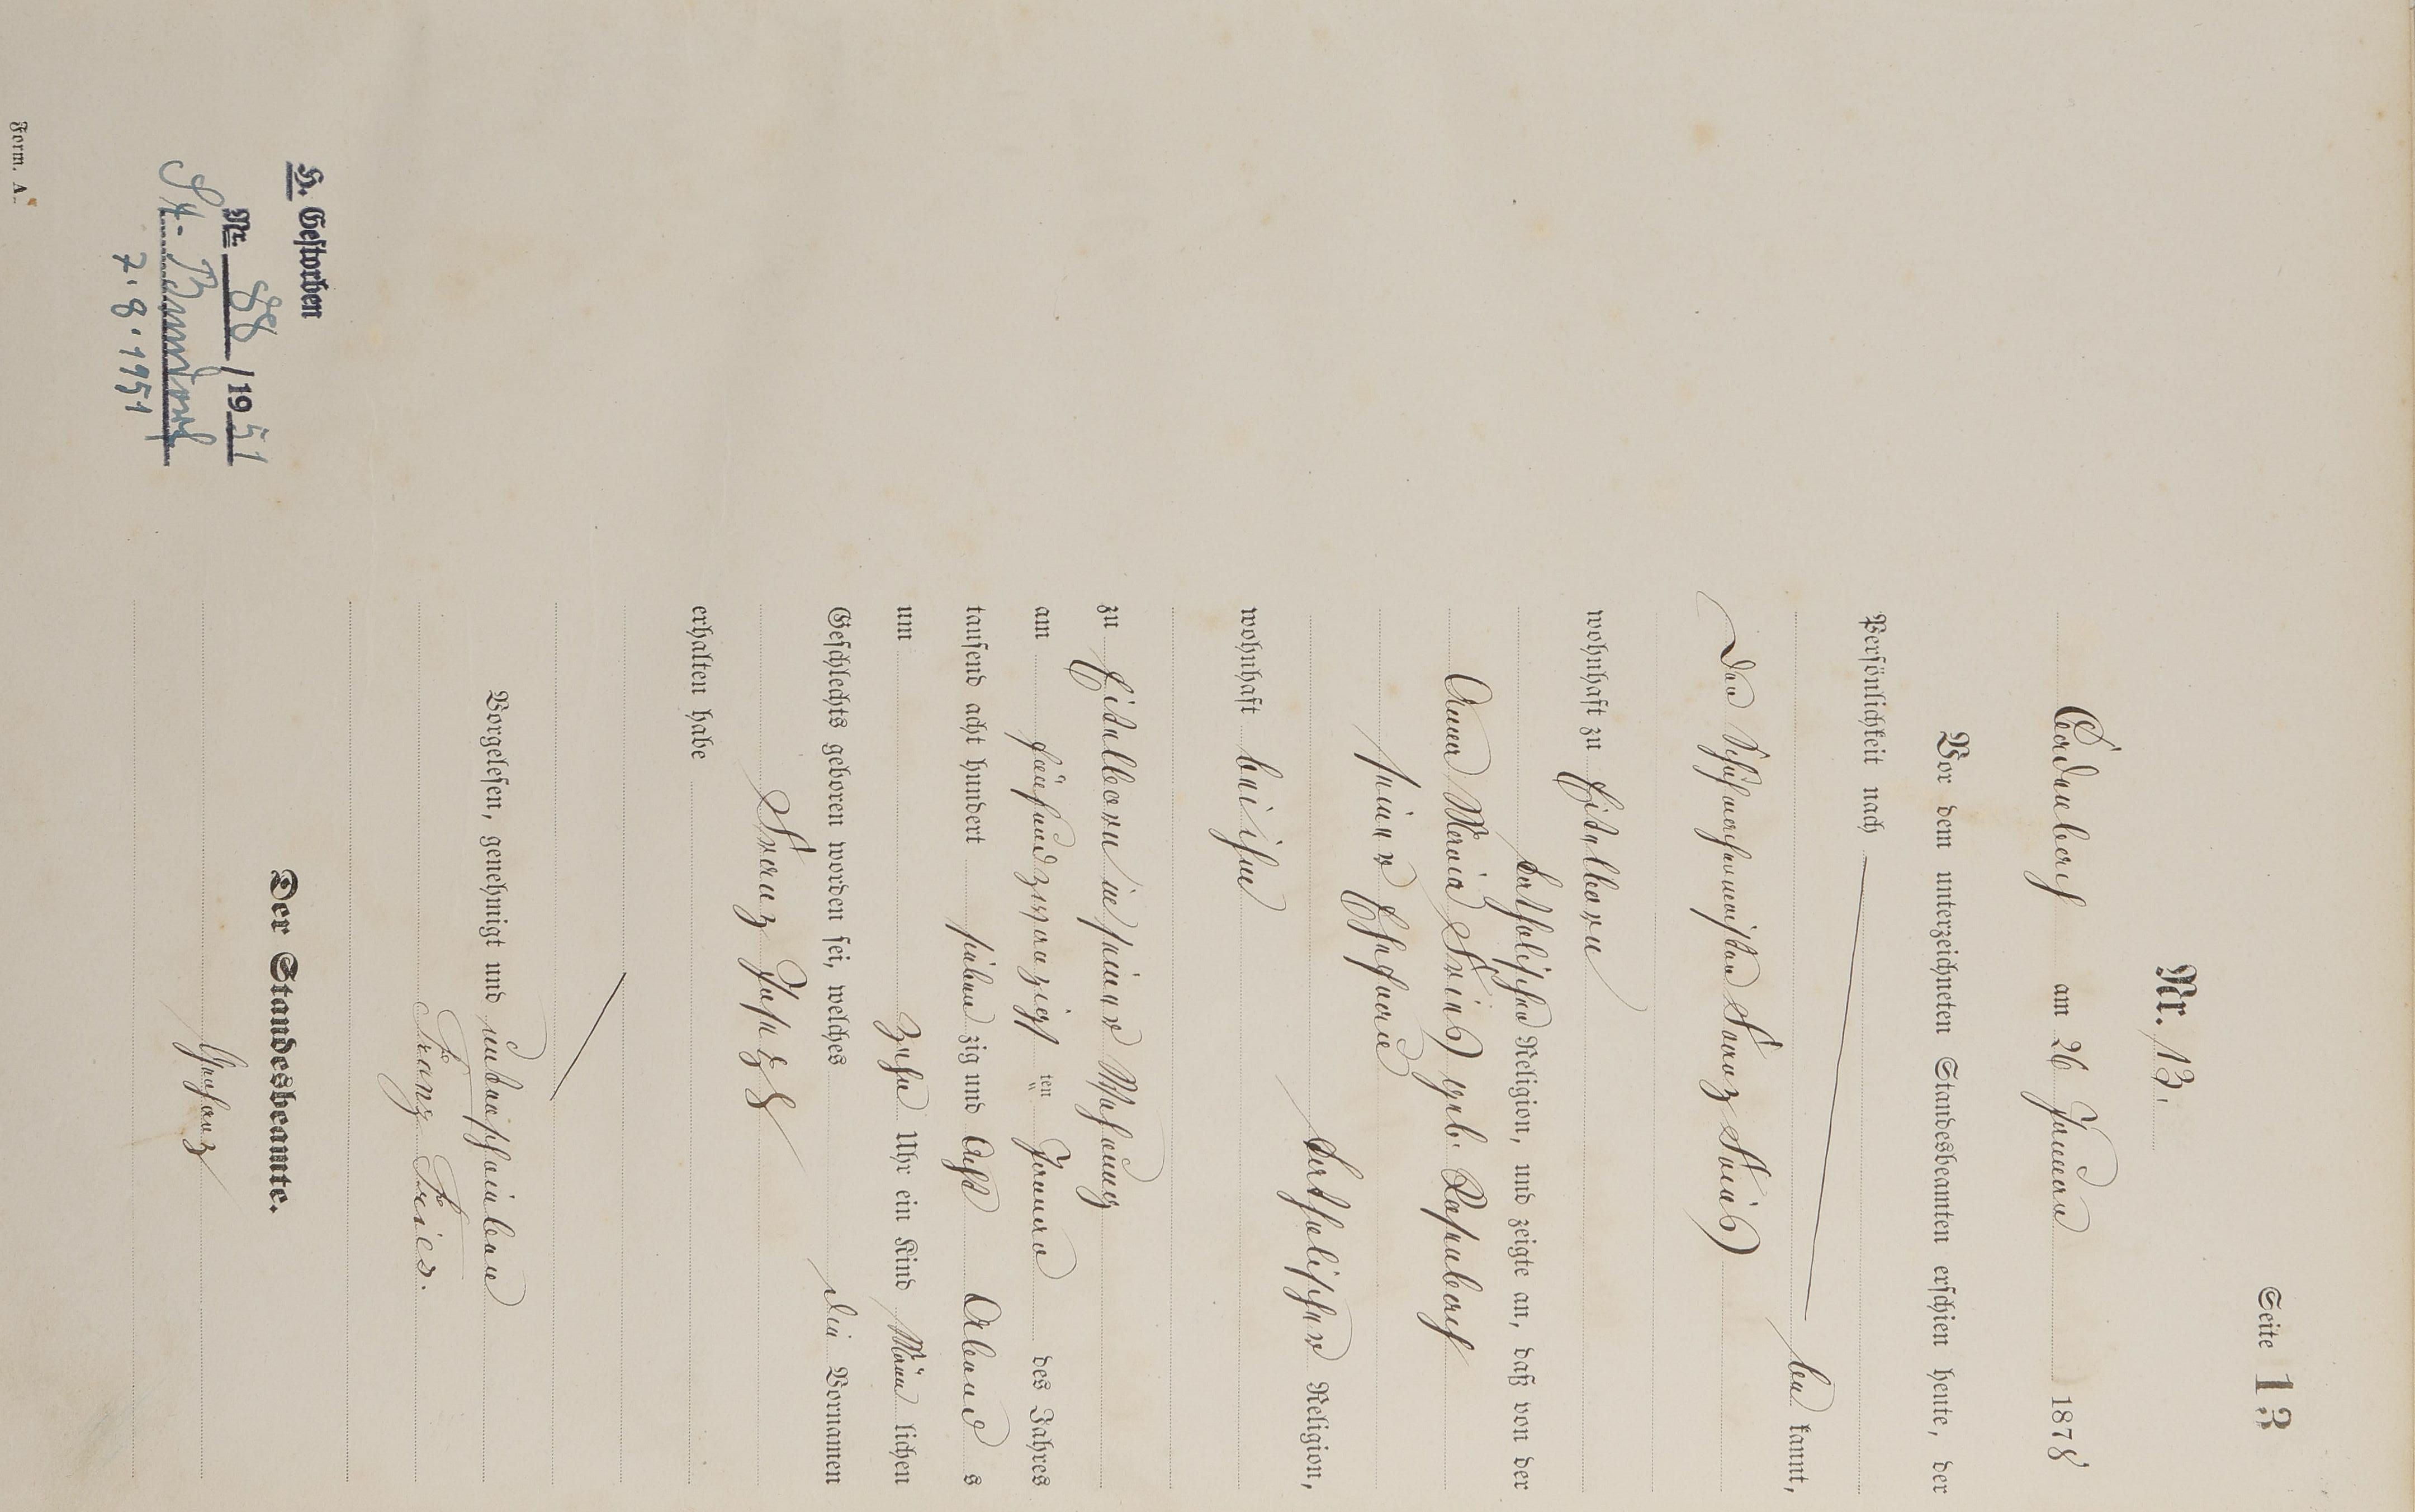 Seite 13
Nr. 13.
Cadenbach am 26 Januar 1878
Vor dem unterzeichneten Standesbeamten erschien heute, der
Persönlichkeit nach
be kannt,
der Franz Fries
wohnhaft zu Eitelborn
katholischer Religion, und zeigte an, daß von der
Anna Maria Fries geb.
seiner Ehefrau
katholischer Religion,
wohnhaft bei ihm
zu Eitelborn in seiner Wohnung
am fünfundzwanzigsten ten Januar des Jahres
tausend acht hundert sieben zig und Acht Abend s
um Zehn Uhr ein Kind Männ lichen
Geschlechts geboren worden sei, welches die Vornamen
Franz Josef
erhalten habe
Vorgelesen, genehmigt und unterschrieben
Franz Fries.
Der Standesbeamte.
H. Gestorben
Nr. 88 / 19 51
7. 8. 1951
Form. A.